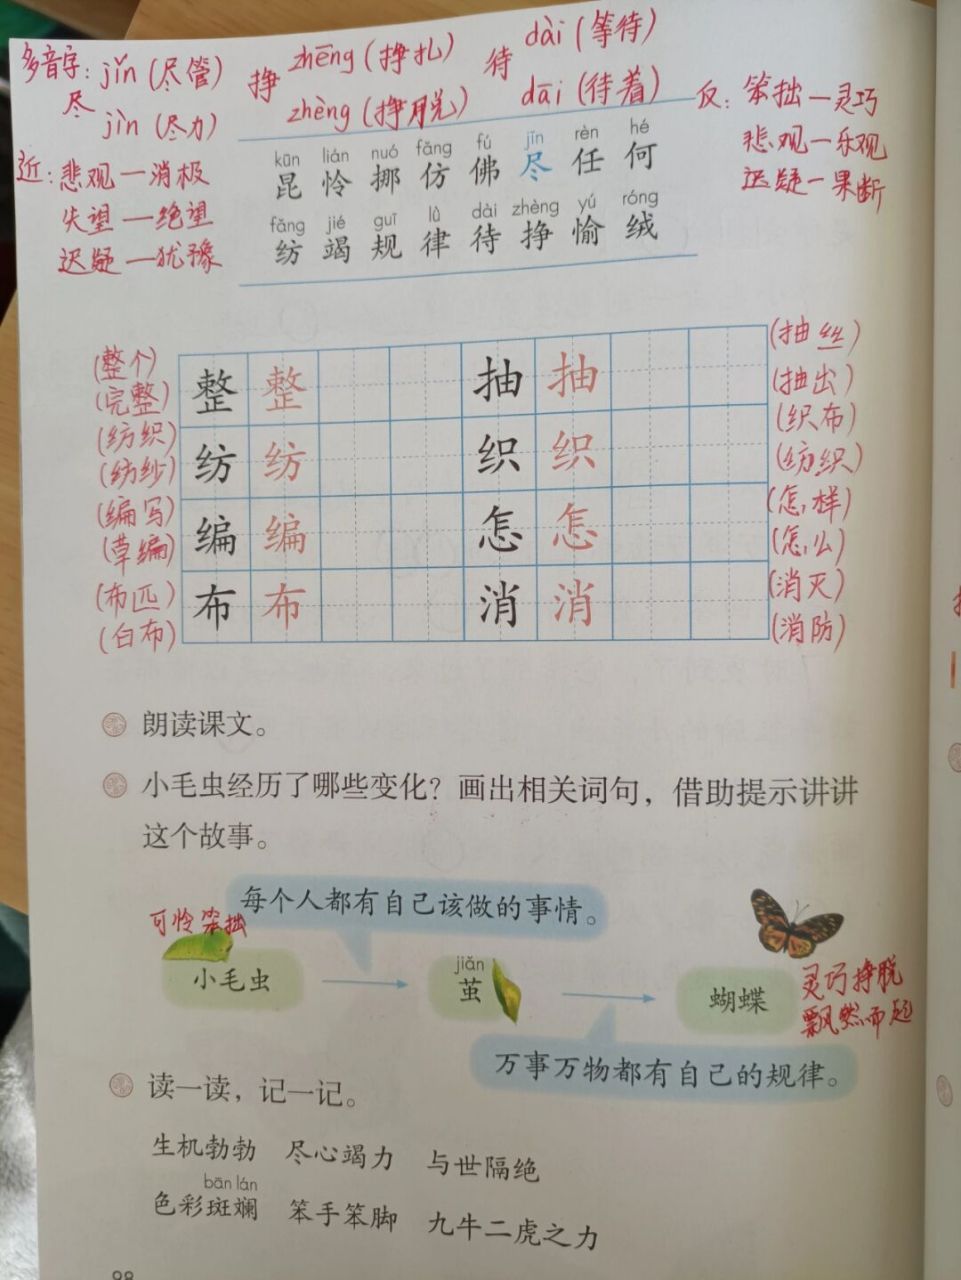 多音字: jǐn (尽管)
尽
jìn (尽力)
挣 zhēng (挣扎)
zhèng (挣脱)
待 dài (等待)
dāi (待着)
反: 笨拙—灵巧
悲观—乐观
迟疑—果断
近: 悲观—消极
失望—绝望
迟疑—犹豫
kūn lián nuó fǎng fú jǐn rèn hé
昆 怜 挪 仿 佛 尽 任 何
fǎng jié guī lǜ dài zhèng yú róng
纺 竭 规 律 待 挣 愉 绒
(整个) 整 整 抽 抽 (抽丝)
(完整) (抽出)
(纺织) 纺 纺 织 织 (织布)
(纺纱) (纺织)
(编写) 编 编 怎 怎 (怎样)
(草编) (怎么)
(布匹) 布 布 消 消 (消灭)
(白布) (消防)
朗读课文。
小毛虫经历了哪些变化？画出相关词句，借助提示讲讲
这个故事。
每个人都有自己该做的事情。
可怜 笨拙
小毛虫
jiǎn
茧
蝴蝶
灵巧 挣脱
飘然而起
万事万物都有自己的规律。
读一读，记一记。
生机勃勃 尽心竭力 与世隔绝
bān lán
色彩斑斓 笨手笨脚 九牛二虎之力
98